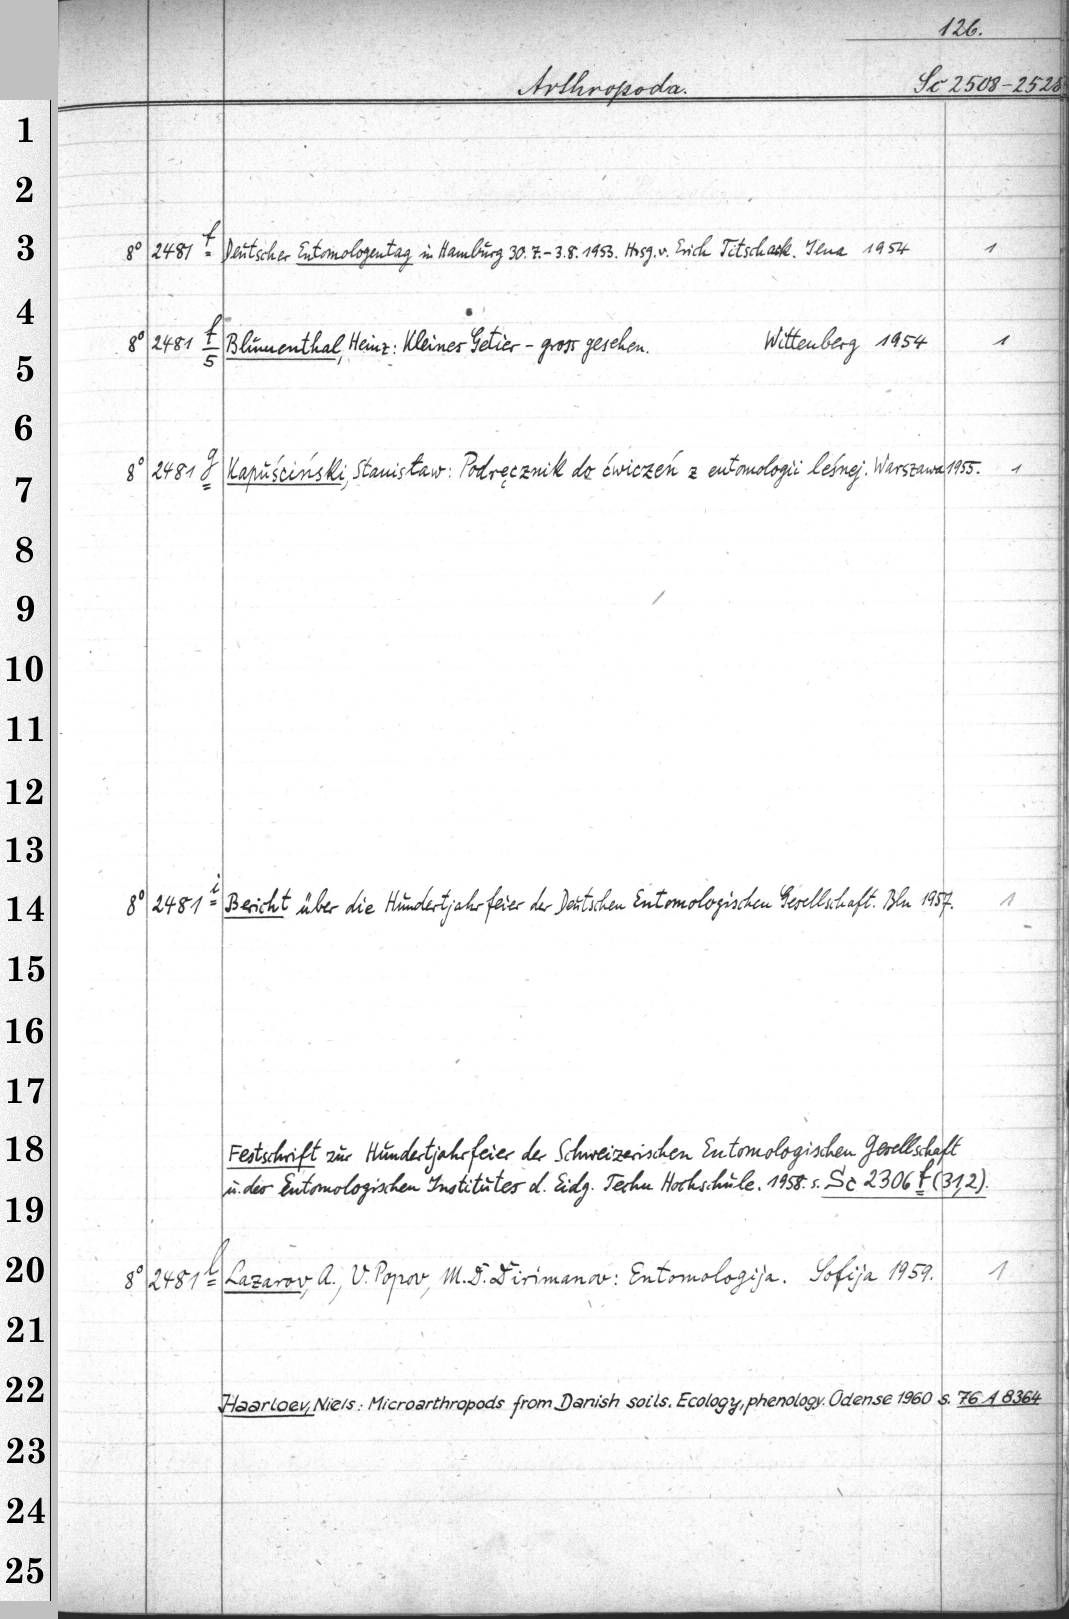 126.
Arthropoda. Sc 2508-2528
1
2
3 8° 2481 f Deutscher Entomologentag in Hamburg 30.7.-3.8.1953. Hrsg. v. Erich Titschack. Jena 1954 1
4
5 8° 2481 f/5 Blumenthal, Heinz: Kleines Getier - gross gesehen. Wittenberg 1954 1
6
7 8° 2481 g Kapuściński, Stanisław: Podręcznik do ćwiczeń z entomologii leśnej. Warszawa 1955. 1
8
9
10
11
12
13
14 8° 2481 i Bericht über die Hundertjahrfeier der Deutschen Entomologischen Gesellschaft. Bln 1957. 1
15
16
17
18 Festschrift zur Hundertjahrfeier der Schweizerischen Entomologischen Gesellschaft
19 u. des Entomologischen Institutes d. Eidg. Techn Hochschule. 1958. s. Sc 2306 f (31,2).
20 8° 2481 l Lazarov, A., V. Popov, M. D. Dirimanov: Entomologija. Sofija 1959. 1
21
22 Haarloev, Niels: Microarthropods from Danish soils. Ecology, phenology. Odense 1960 s. 76 A 8364
23
24
25